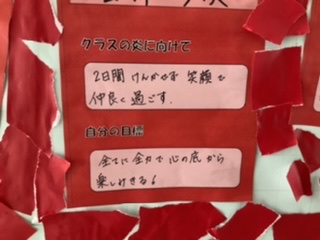 クラスの炎に向けて
2日間けんかせず笑顔で
仲良く過ごす.
自分の目標
全てに全力で心の底から
楽しみきる!